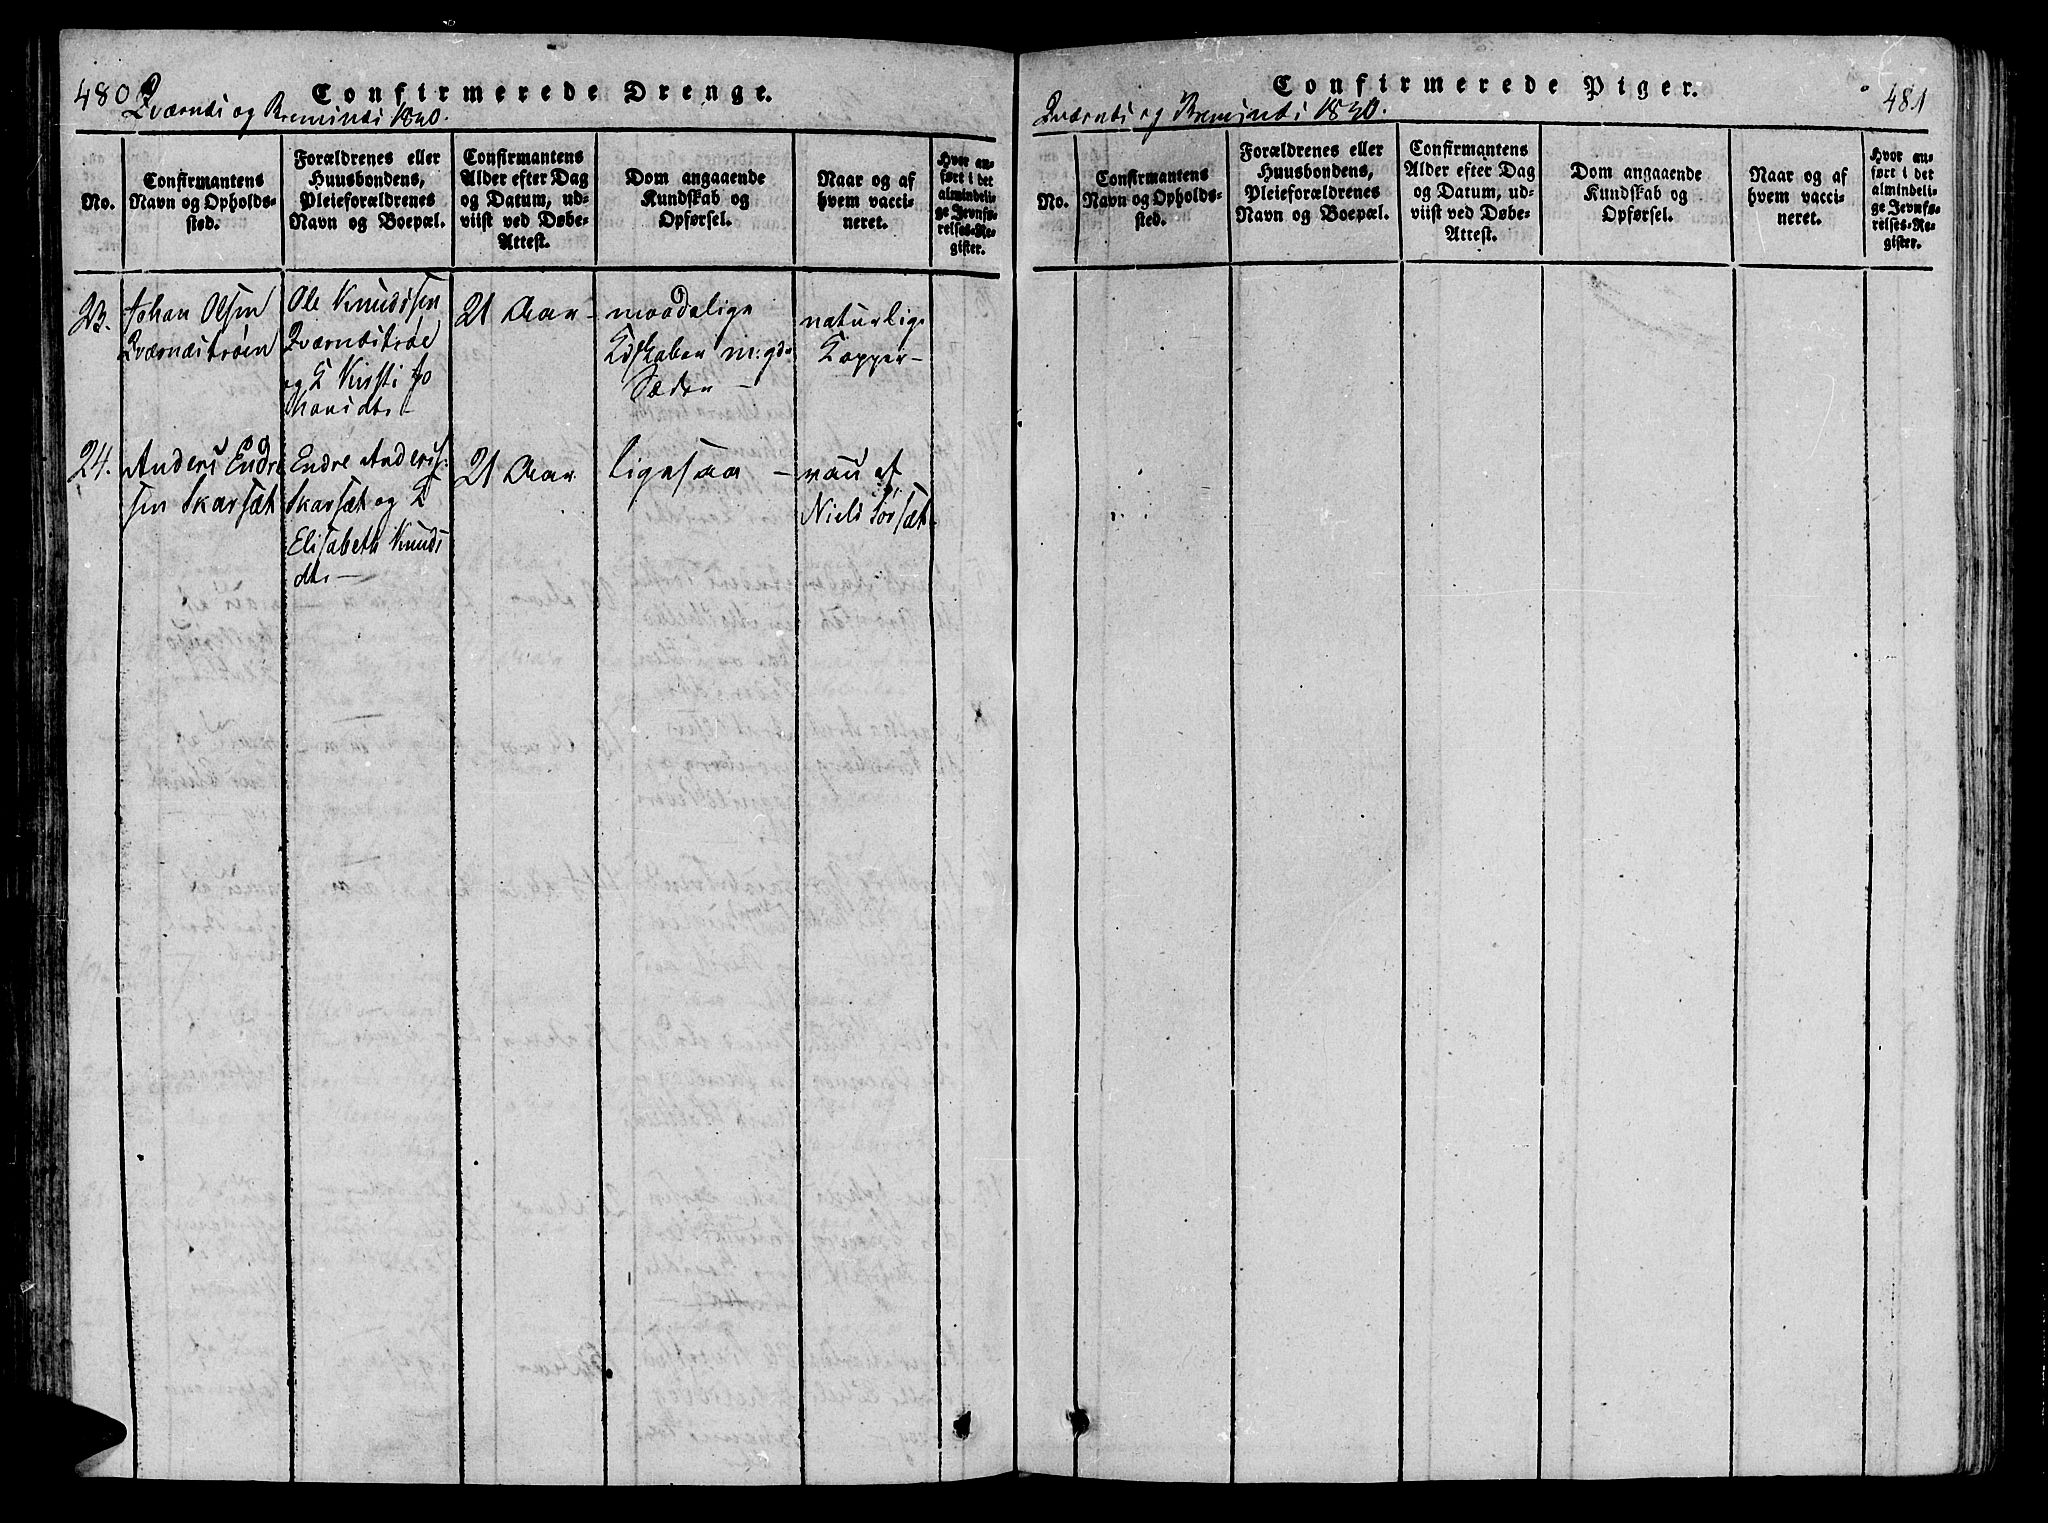 480
Confirmerede Drenge.
Qværnæs og Bremsnæs 1820.
No.
Confirmantens
Navn og Opholds-
sted.
Forældrenes eller
Huusbondens,
Pleieforældrenes
Navn og Boepæl.
Confirmantens
Alder efter Dag
og Datum, ud-
viist ved Døbe-
Attest.
Dom angaaende
Kundskab og
Opførsel.
Naar og af
hvem vacci-
neret.
Hvor an-
ført i det
almindeli-
ge Jevnfø-
relses-Re-
gister.
23.
Johan Olsen
Qværnæstrøen
Ole Knudssen
Qværnæstrøe
og K Kirsti Jo
hansdtr.
21 Aar -
maadelige
Kdskaber m: gde
Sæder -
naturlige
Kopper -
24.
Anders Endre
sen Skarsæt
Endre Anderss:
Skarsæt og K
Elisabeth Knuds
dtr. -
21 Aar
ligesaa -
vac af
Niels Sørsæt
Confirmerede Piger.
481
Qværnæs og Bremsnæs 1820.
No.
Confirmantens
Navn og Opholds-
sted.
Forældrenes eller
Huusbondens,
Pleieforældrenes
Navn og Boepæl.
Confirmantens
Alder efter Dag
og Datum, ud-
viist ved Døbe-
Attest.
Dom angaaende
Kundskab og
Opførsel.
Naar og af
hvem vacci-
neret.
Hvor an-
ført i det
almindeli-
ge Jevnfø-
relses-Re-
gister.